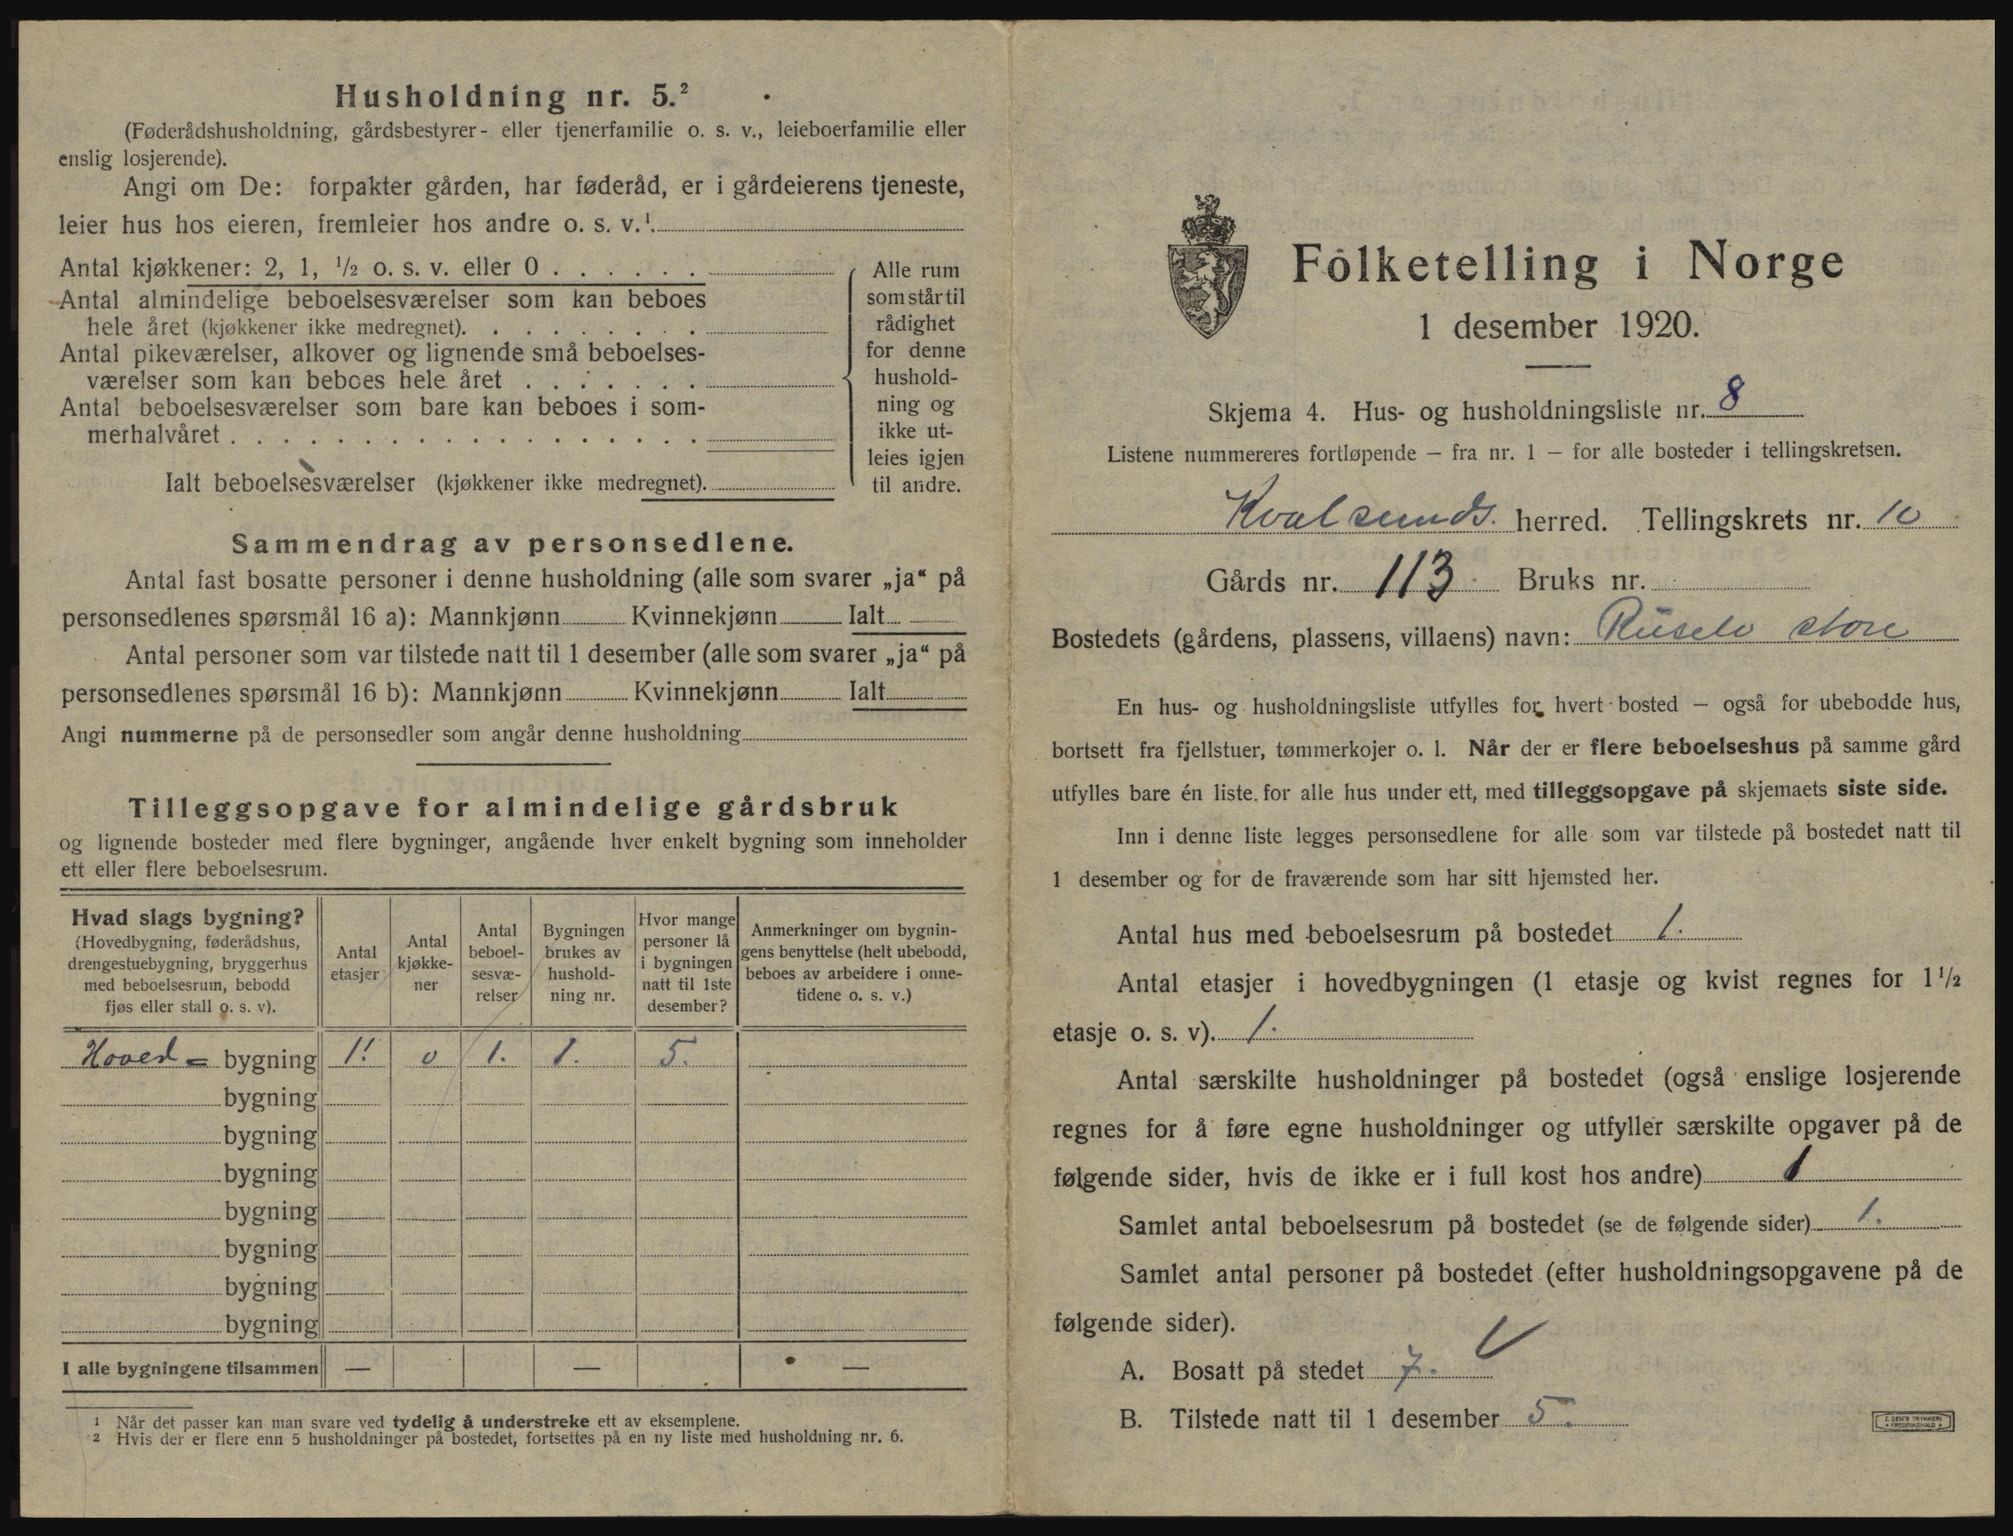 Husholdning nr. 5.²
(Føderådshusholdning, gårdsbestyrer- eller tjenerfamilie o. s. v., leieboerfamilie eller
enslig losjerende).
Angi om De: forpakter gården, har føderåd, er i gårdeierens tjeneste,
leier hus hos eieren, fremleier hos andre o. s. v.¹.
Antal kjøkkener: 2, 1, ½ o. s. v. eller 0 . . . . . .
Antal almindelige beboelsesværelser som kan beboes
hele året (kjøkkener ikke medregnet). . . . . . . . .
Antal pikeværelser, alkover og lignende små beboelses-
værelser som kan beboes hele året . . . . . . .
Antal beboelsesværelser som bare kan beboes i som-
merhalvåret . . . . . . . . . . . . . . . . . .
Ialt beboelsesværelser (kjøkkener ikke medregnet).
Alle rum
som står til
rådighet
for denne
hushold-
ning og
ikke ut-
leies igjen
til andre.
Sammendrag av personsedlene.
Antal fast bosatte personer i denne husholdning (alle som svarer „ja“ på
personsedlenes spørsmål 16 a): Mannkjønn Kvinnekjønn Ialt
Antal personer som var tilstede natt til 1 desember (alle som svarer „ja“ på
personsedlenes spørsmål 16 b): Mannkjønn Kvinnekjønn Ialt
Angi nummerne på de personsedler som angår denne husholdning
Tilleggsopgave for almindelige gårdsbruk
og lignende bosteder med flere bygninger, angående hver enkelt bygning som inneholder
ett eller flere beboelsesrum.
Hvad slags bygning?
(Hovedbygning, føderådshus,
drengestuebygning, bryggerhus
med beboelsesrum, bebodd
fjøs eller stall o. s. v).
Antal
etasjer
Antal
kjøkke-
ner
Antal
beboel-
sesvæ-
relser
Bygningen
brukes av
hushold-
ning nr.
Hvor mange
personer lå
i bygningen
natt til 1ste
desember?
Anmerkninger om bygnin-
gens benyttelse (helt ubebodd,
beboes av arbeidere i onne-
tidene o. s. v.)
Hoved = bygning 1. 0 1. 1. 5.
bygning
bygning
bygning
bygning
bygning
bygning
bygning
I alle bygningene tilsammen — — —
¹ Når det passer kan man svare ved tydelig å understreke ett av eksemplene.
² Hvis der er flere enn 5 husholdninger på bostedet, fortsettes på en ny liste med husholdning nr. 6.
Folketelling i Norge
1 desember 1920.
Skjema 4. Hus- og husholdningsliste nr. 8
Listene nummereres fortløpende — fra nr. 1 — for alle bosteder i tellingskretsen.
Kvalsunds herred. Tellingskrets nr. 10
Gårds nr. 113 Bruks nr.
Bostedets (gårdens, plassens, villaens) navn: store
En hus- og husholdningsliste utfylles for hvert bosted — også for ubebodde hus,
bortsett fra fjellstuer, tømmerkojer o. l. Når der er flere beboelseshus på samme gård
utfylles bare én liste for alle hus under ett, med tilleggsopgave på skjemaets siste side.
Inn i denne liste legges personsedlene for alle som var tilstede på bostedet natt til
1 desember og for de fraværende som har sitt hjemsted her.
Antal hus med beboelsesrum på bostedet 1.
Antal etasjer i hovedbygningen (1 etasje og kvist regnes for 1½
etasje o. s. v). 1.
Antal særskilte husholdninger på bostedet (også enslige losjerende
regnes for å føre egne husholdninger og utfyller særskilte opgaver på de
følgende sider, hvis de ikke er i full kost hos andre) 1
Samlet antal beboelsesrum på bostedet (se de følgende sider) 1.
Samlet antal personer på bostedet (efter husholdningsopgavene på de
følgende sider).
A. Bosatt på stedet 7.
B. Tilstede natt til 1 desember 5.